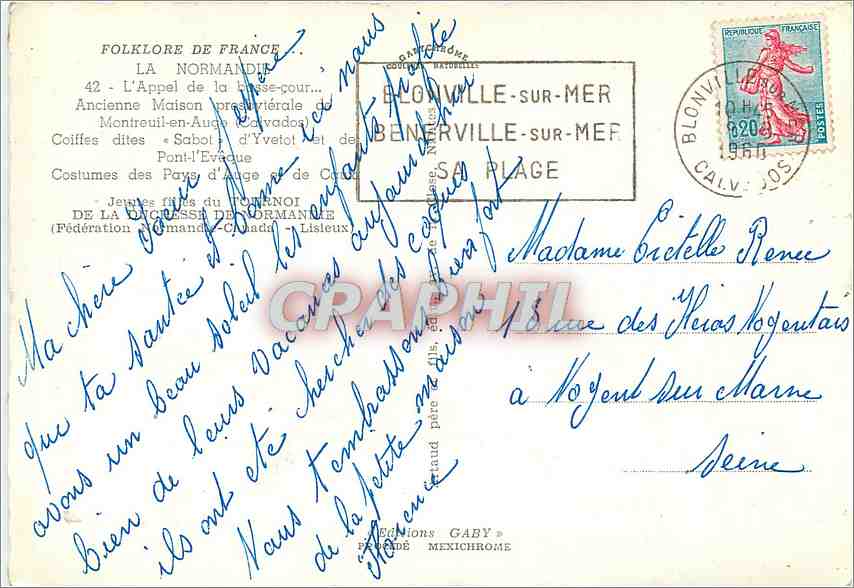 FOLKLORE DE FRANCE...
LA NORMANDIE
42 - L'Appel de la basse-cour...
Ancienne Maison presbytérale de
Montreuil-en-Auge (Calvados)
Coiffes dites « Sabot » d'Yvetot et de
Pont-l'Evêque
Costumes des Pays d'Auge et de Caux
Jeunes filles du TOURNOI
DE LA DUCHESSE DE NORMANDIE
(Fédération Normandie-Canada - Lisieux)
GABYCHROME
COULEURS NATURELLES
BLONVILLE-SUR-MER
BENERVILLE-SUR-MER
SA PLAGE
BLONVILLE SUR MER
1960
CALVADOS
REPUBLIQUE FRANÇAISE
0,20
POSTES
Ma chère Soeur j'espère
que ta santée et bonne ici nous
avons un beau soleil les enfants profite
bien de leurs vacances aujourd'hui
ils ont été chercher des coques
Nous t'embrassons bien fort
de la petite maison
Madame Cretelle Renee
13 rue des Heros Nogentais
à Nogent sur Marne
Seine
Artaud père et fils, éd.
CRAPHIL
« Editions GABY »
PROCÉDÉ MEXICHROME